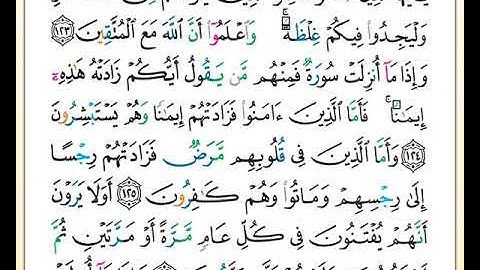 وَلْيَجِدُوا۟ فِيكُمْ غِلْظَةً ۚ وَٱعْلَمُوٓا۟ أَنَّ ٱللَّهَ مَعَ ٱلْمُتَّقِينَ ١٢٣
وَإِذَا مَآ أُنزِلَتْ سُورَةٌ فَمِنْهُم مَّن يَقُولُ أَيُّكُمْ زَادَتْهُ هَٰذِهِۦٓ
إِيمَٰنًا ۚ فَأَمَّا ٱلَّذِينَ ءَامَنُوا۟ فَزَادَتْهُمْ إِيمَٰنًا وَهُمْ يَسْتَبْشِرُونَ
١٢٤ وَأَمَّا ٱلَّذِينَ فِى قُلُوبِهِم مَّرَضٌ فَزَادَتْهُمْ رِجْسًا
إِلَىٰ رِجْسِهِمْ وَمَاتُوا۟ وَهُمْ كَٰفِرُونَ ١٢٥ أَوَلَا يَرَوْنَ
أَنَّهُمْ يُفْتَنُونَ فِى كُلِّ عَامٍ مَّرَّةً أَوْ مَرَّتَيْنِ ثُمَّ